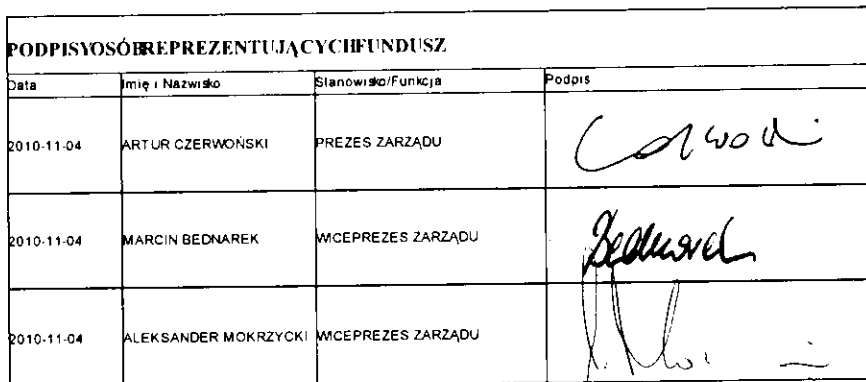 PODPISYOSÓBREPREZENTUJĄCYCHFUNDUSZ
Data Imię i Nazwisko Stanowisko/Funkcja Podpis
2010-11-04 ARTUR CZERWOŃSKI PREZES ZARZĄDU
2010-11-04 MARCIN BEDNAREK WICEPREZES ZARZĄDU Bednarek
2010-11-04 ALEKSANDER MOKRZYCKI WICEPREZES ZARZĄDU